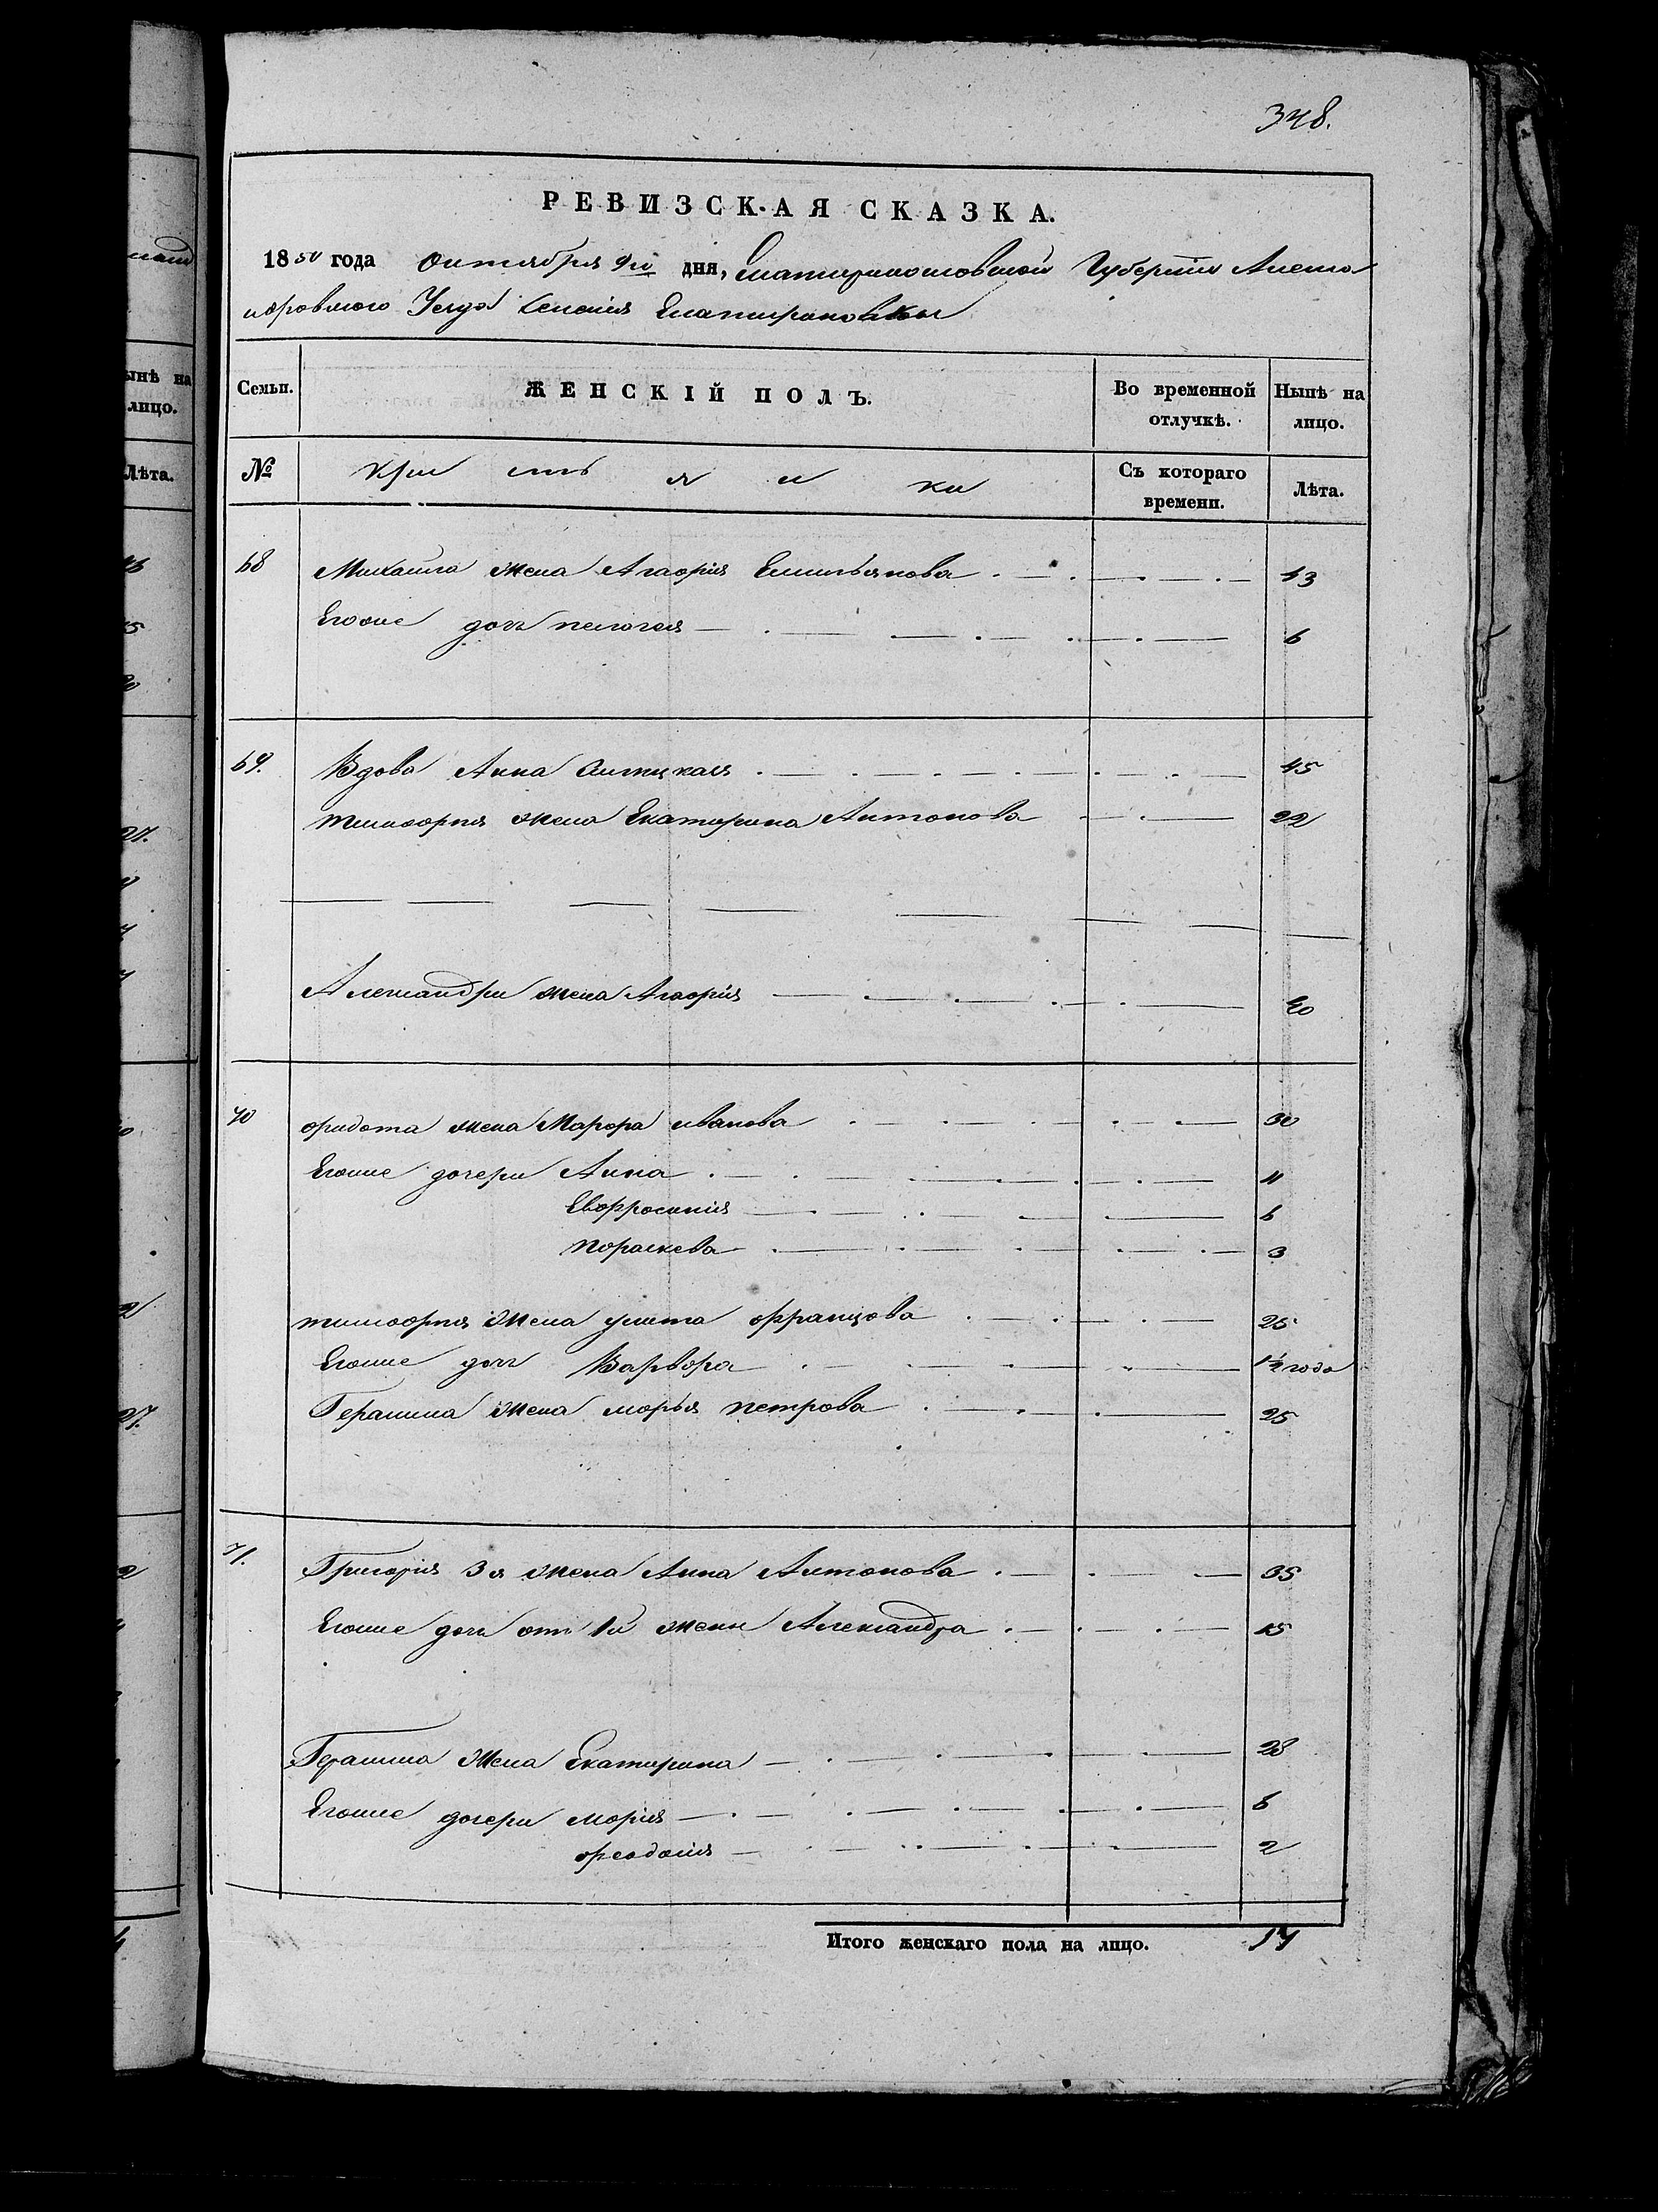 348.
РЕВИЗСКАЯ СКАЗКА.
1850 года Октября 9го дня, Екатиринославской Губерніи Алекса
ндровскаго Уезда Селенія Екатириновки
Семьи. ЖЕНСКІЙ ПОЛЪ. Во временной отлучкѣ. Нынѣ на лицо.
№ Кристьянки Съ котораго времени. Лѣта.
68 Михайла жена Агафія Емильянова 43
Егоже дочь пелагея 6
69. Вдова Анна 45
тимофия жена Екатирина Антонова 22
Александра жена Агафія 20
70 федота жена Марфа иванова 30
Егоже дочери Анна 11
Евфросинія 6
Пораскева 3
тимофия жена улита францова 25
Егоже дочь Варвора 1½ года
Герасима жена марья петрова 25
71. Григорія 3я жена Анна Антонова 35
Егоже дочь отъ 1й жены Александра 15
Герасима жена Екатирина 28
Егоже дочери Марія 6
феодосія 2
Итого женскаго пола на лицо. 17
ынѣ на
лицо.
Лѣта.
27.
27.